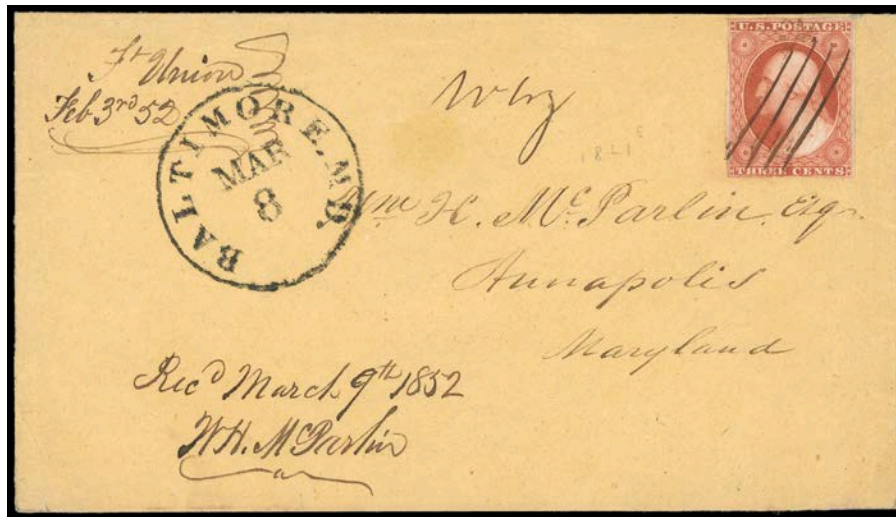 Ft Union
Feb 3rd 52
BALTIMORE, MD.
MAR
8
U.S. POSTAGE
THREE CENTS
Wm H. McParlin, Esqr.
Annapolis
Maryland
Recd March 9th 1852
W.H. McParlin